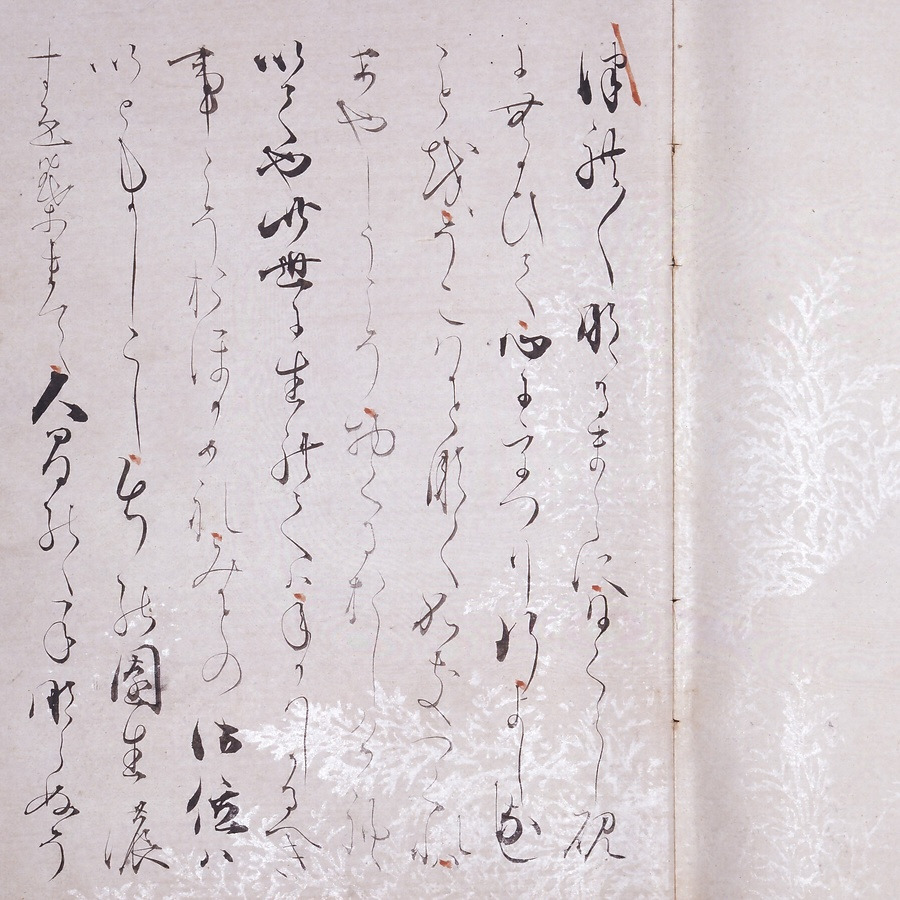 つれ〱なるまゝに日くらし硯
にむかひて心にうつり行よしなし
ことをそこはかとなくかきつくれは
あやしうこそ物くるおしけれ
いてや此世に生れてはねかはしかるへき
事こそおほかめれみかとの御位は
いともかしこし竹の園生の
すゑ葉まて人間のたねならぬそ